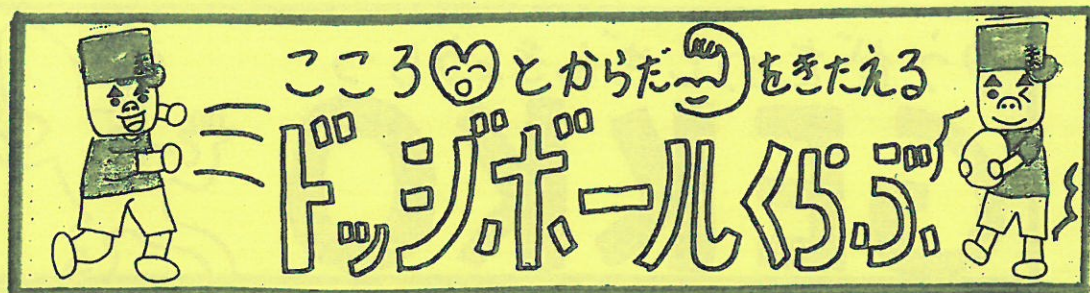 こころとからだをきたえる
ドッジボールくらぶ